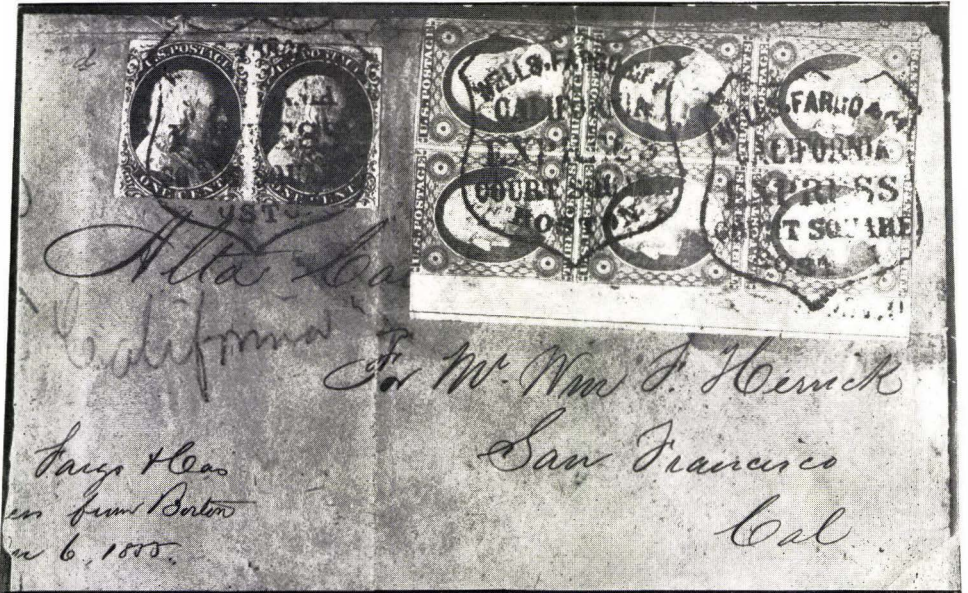 U.S. POSTAGE
ONE CENT.
ONE CENT.
U.S. POSTAGE
WELLS, FARGO & Co
CALIFORNIA
EXPRESS
COURT SQUARE
BOSTON
WELLS, FARGO & Co
CALIFORNIA
EXPRESS
COURT SQUARE
Alta
California
For Mr. Wm F. Herrick
San Francisco
Cal
Fargo & Cos
from Boston
6. 1855.